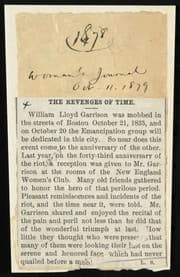 1878
Woman's Journal
Oct. 11. 1879
THE REVENGES OF TIME.
William Lloyd Garrison was mobbed in
the streets of Boston October 21, 1835, and
on October 20 the Emancipation group will
be dedicated in this city. So near does this
event come to the anniversary of the other.
Last year, on the forty-third anniversary of
the riot, a reception was given to Mr. Gar-
rison at the rooms of the New England
Women's Club. Many old friends gathered
to honor the hero of that perilous period.
Pleasant reminiscences and incidents of the
riot, and the time near it, were told. Mr.
Garrison shared and enjoyed the recital of
the pain and peril not less than he did that
of the wonderful triumph at last. How
little they thought who were present that
many of them were looking their last on the
serene and heroic face which had never
quailed before a mob.
L. S.